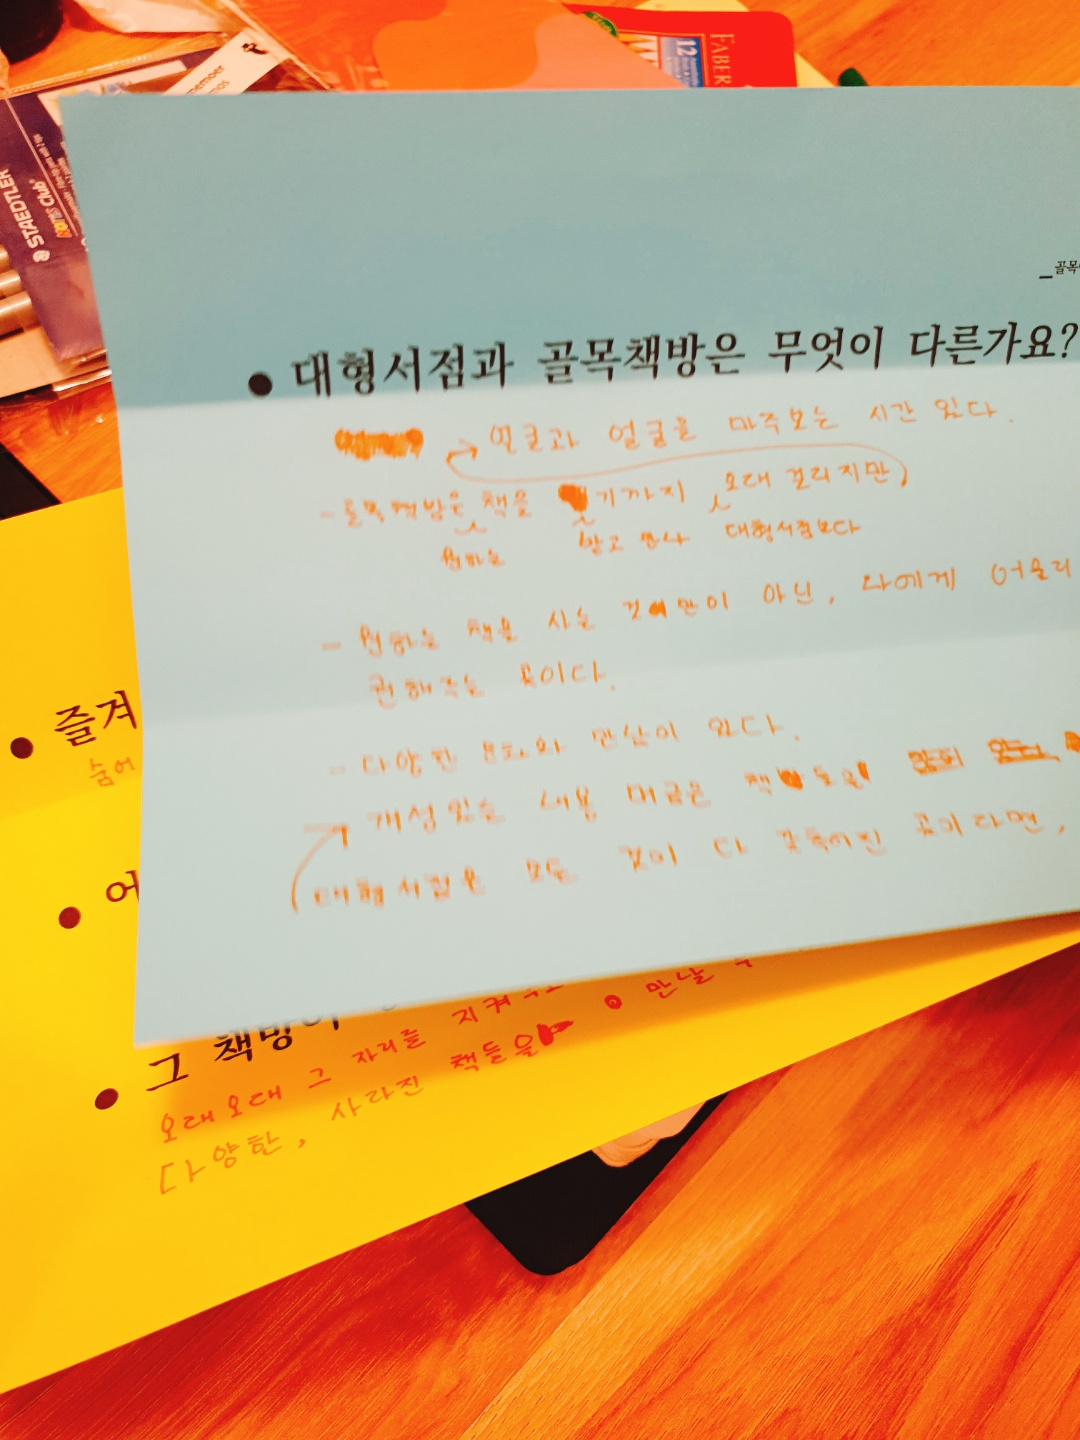 FABER
12
STAEDTLER
Club
골목
● 대형서점과 골목책방은 무엇이 다른가요?
얼굴과 얼굴을 마주보는 시간 있다.
- 골목책방은 책을 기까지 오래 걸리지만,
원하는 받고 만나 대형서점보다
- 원하는 책을 사는 것만이 아닌, 나에게 어울리
권해주는 곳이다.
- 다양한 문화와 만남이 있다.
개성있는 내용 머금은 책들을
대형서점은 모든 것이 다 갖추어진 곳이라면,
● 즐겨
숨어
● 어
● 그 책방이
오래오래 그 자리를 지켜주
다양한, 사라진 책들을 만날 수